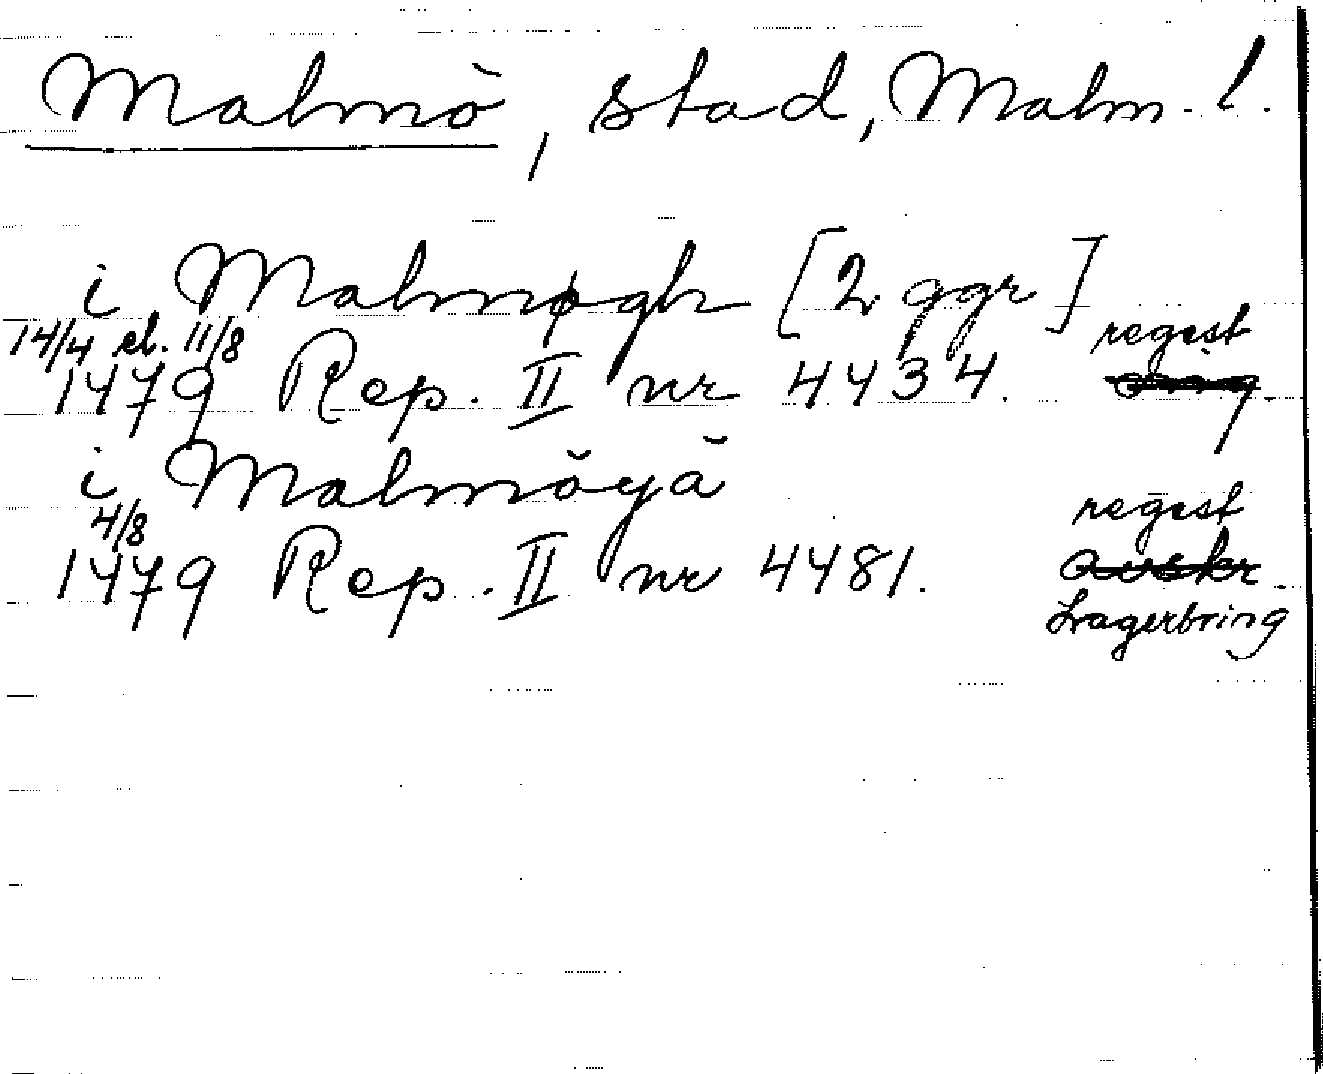 Malmö, stad, Malm. l.
i Malmøgh [2 ggr]
14/4 el. 11/8 regest
1479 Rep. II nr 4434.
i Malmöyä
4/8 regest
1479 Rep. II nr 4481. avskr.
Lagerbring